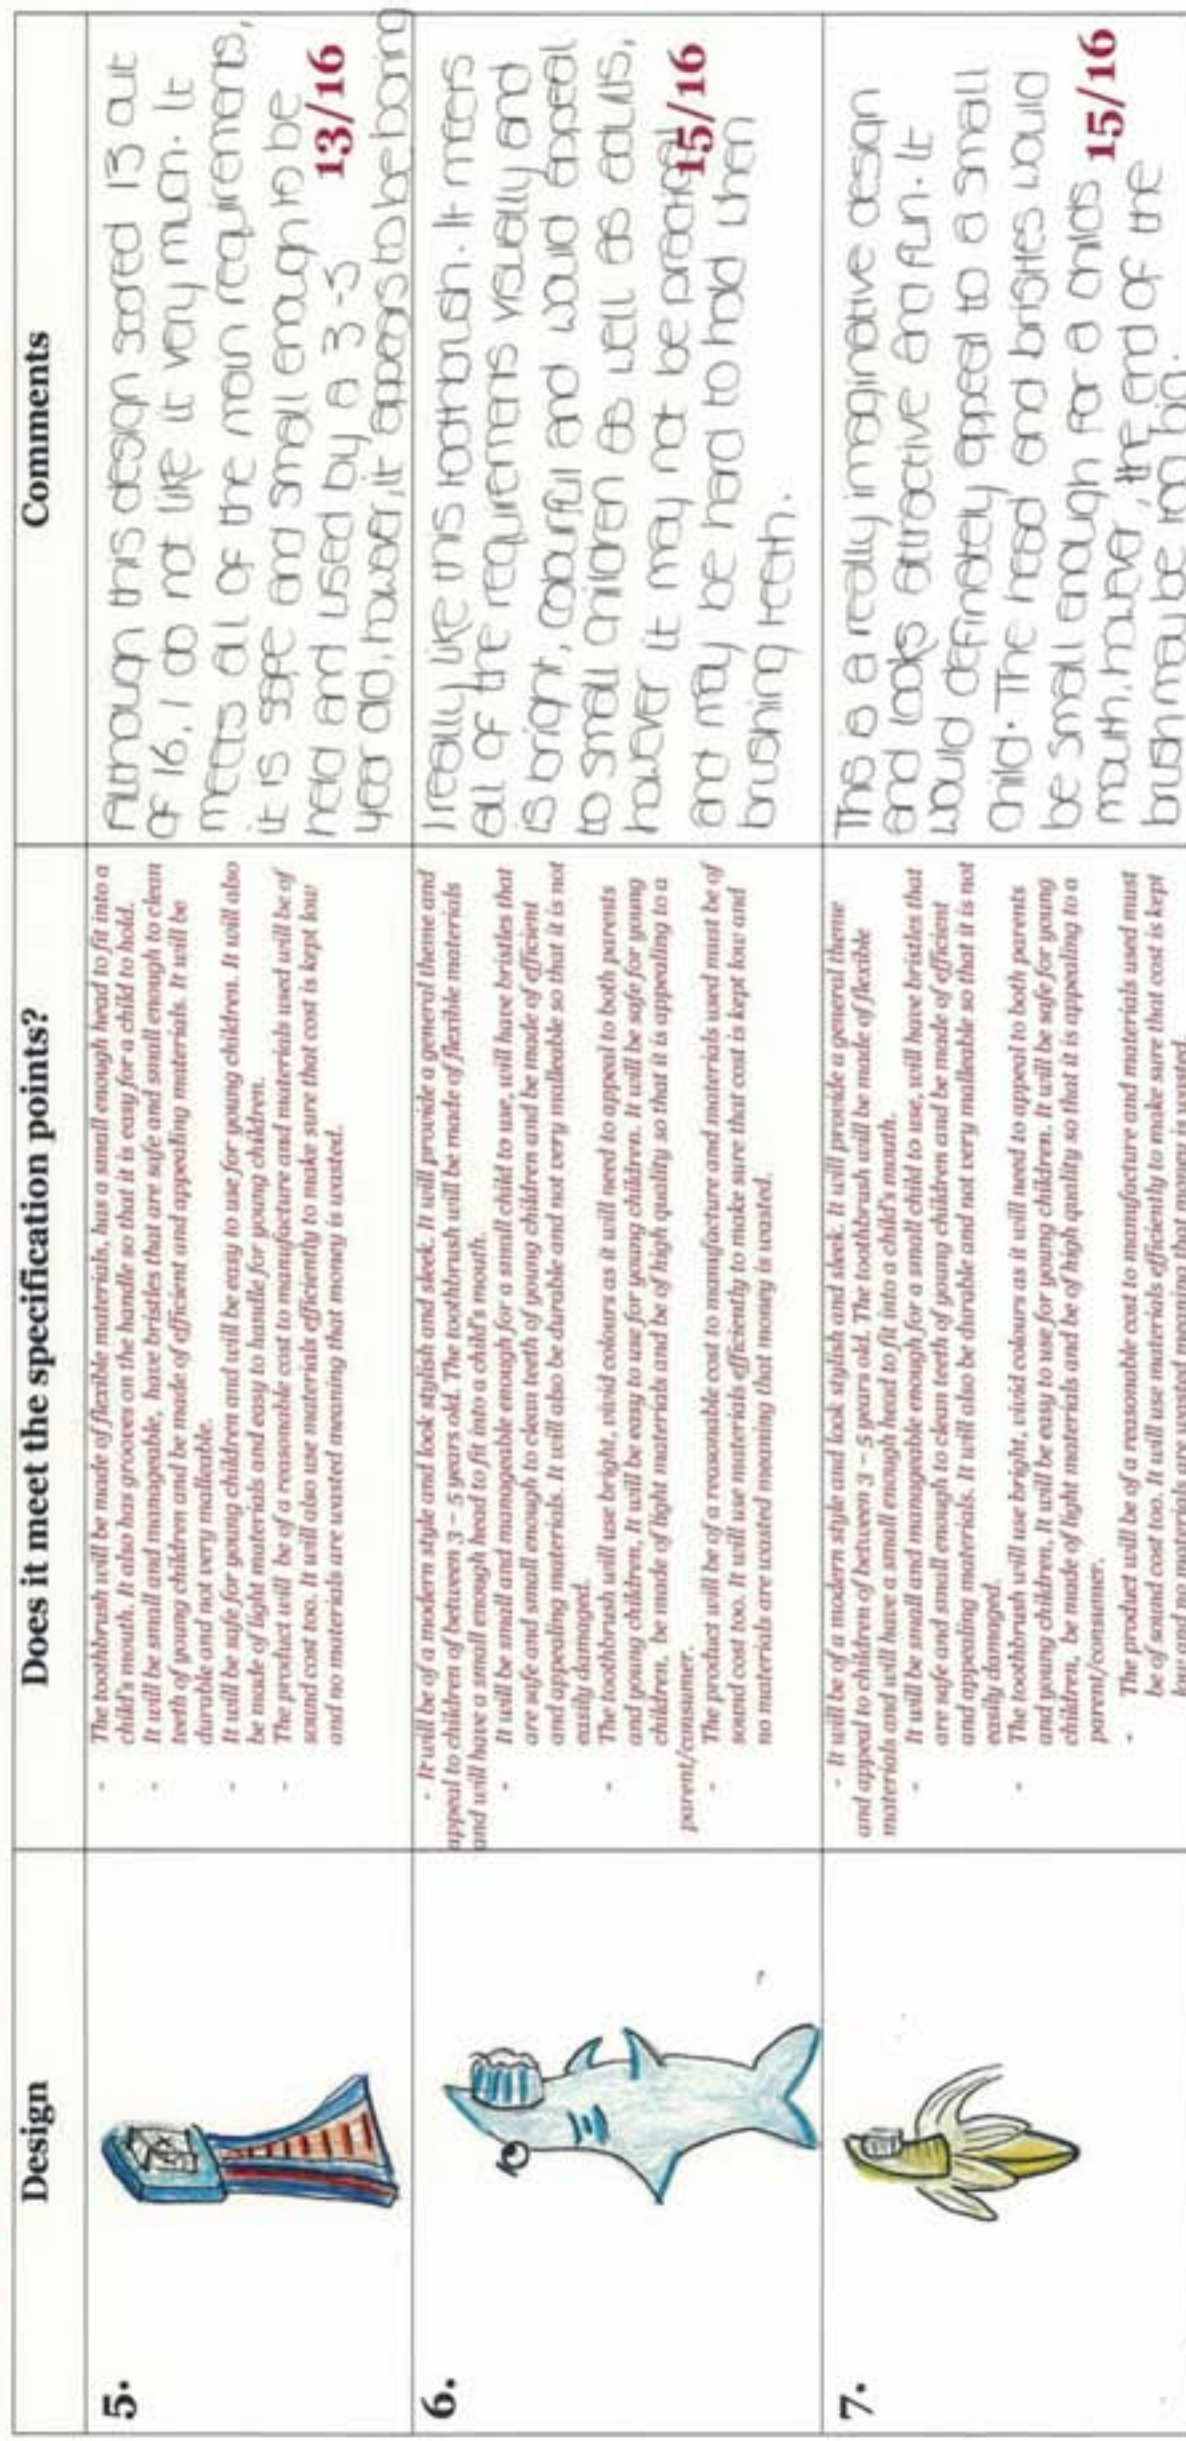 Design
Does it meet the specification points?
Comments
5.
- The toothbrush will be made of flexible materials, has a small enough head to fit into a
child's mouth. It also has grooves on the handle so that it is easy for a child to hold.
- It will be small and manageable, have bristles that are safe and small enough to clean
teeth of young children and be made of efficient and appealing materials. It will be
durable and not very malleable.
- It will be safe for young children and will be easy to use for young children. It will also
be made of light materials and easy to handle for young children.
- The product will be of a reasonable cost to manufacture and materials used will be of
sound cost too. It will also use materials efficiently to make sure that cost is kept low
and no materials are wasted meaning that money is wasted.
Although this design scored 13 out
of 16, I do not like it very much. It
meets all of the main requirements,
it is safe and small enough to be
held and used by a 3-5
year old, however, it appears to be boring
13/16
6.
- It will be of a modern style and look stylish and sleek. It will provide a general theme and
appeal to children of between 3 – 5 years old. The toothbrush will be made of flexible materials
and will have a small enough head to fit into a child's mouth.
- It will be small and manageable enough for a small child to use, will have bristles that
are safe and small enough to clean teeth of young children and be made of efficient
and appealing materials. It will also be durable and not very malleable so that it is not
easily damaged.
- The toothbrush will use bright, vivid colours as it will need to appeal to both parents
and young children. It will be easy to use for young children. It will be safe for young
children, be made of light materials and be of high quality so that it is appealing to a
parent/consumer.
- The product will be of a reasonable cost to manufacture and materials used must be of
sound cost too. It will use materials efficiently to make sure that cost is kept low and
no materials are wasted meaning that money is wasted.
I really like this toothbrush. It meets
all of the requirements visually and
is bright, colourful and would appeal
to small children as well as adults,
however it may not be practical
and may be hard to hold when
brushing teeth.
15/16
7.
- It will be of a modern style and look stylish and sleek. It will provide a general theme
and appeal to children of between 3 – 5 years old. The toothbrush will be made of flexible
materials and will have a small enough head to fit into a child's mouth.
- It will be small and manageable enough for a small child to use, will have bristles that
are safe and small enough to clean teeth of young children and be made of efficient
and appealing materials. It will also be durable and not very malleable so that it is not
easily damaged.
- The toothbrush will use bright, vivid colours as it will need to appeal to both parents
and young children. It will be easy to use for young children. It will be safe for young
children, be made of light materials and be of high quality so that it is appealing to a
parent/consumer.
- The product will be of a reasonable cost to manufacture and materials used must
be of sound cost too. It will use materials efficiently to make sure that cost is kept
low and no materials are wasted meaning that money is wasted.
This is a really imaginative design
and looks attractive and fun. It
would definetely appeal to a small
child. The head and bristles would
be small enough for a childs
mouth, however, the end of the
brush may be too big.
15/16